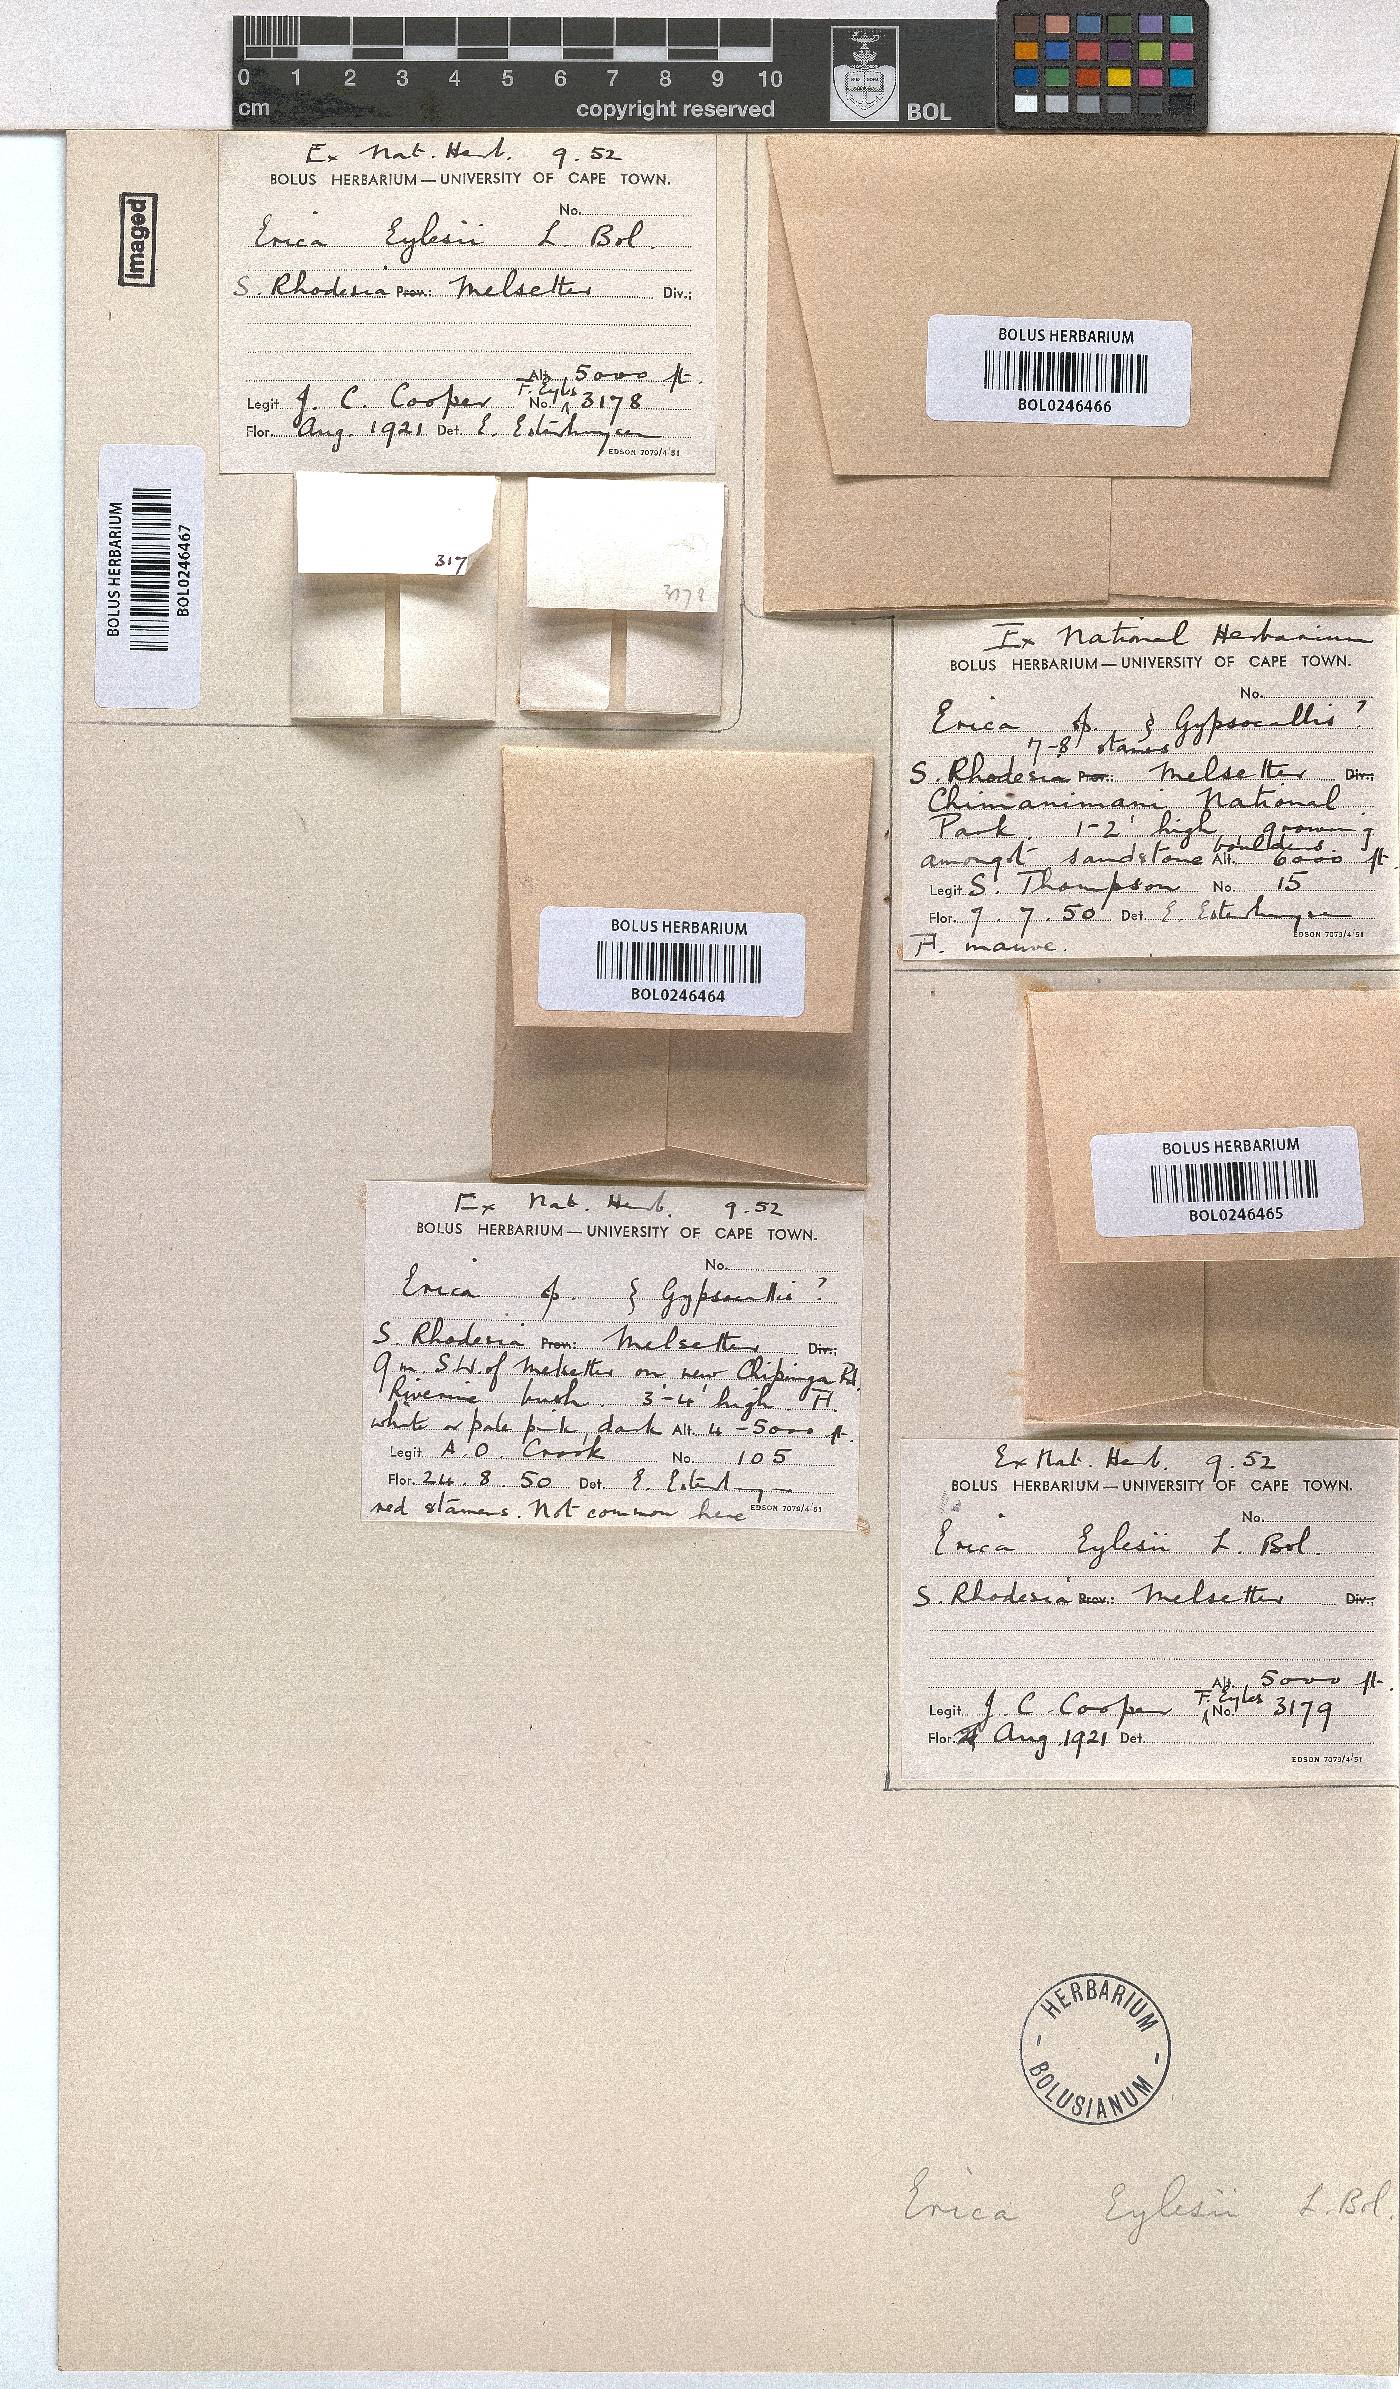 0 1 2 3 4 5 6 7 8 9 10
cm copyright reserved BOL
Imaged
Ex Nat. Herb. 9.52
BOLUS HERBARIUM—UNIVERSITY OF CAPE TOWN.
No.
Erica Eylesii L. Bol.
S. Rhodesia Prov.: Melsetter Div.;
Alt. 5000 ft.
F. Eyles
Legit J. C. Cooper No. 3178
Flor. Aug. 1921 Det. E. Esterhuysen
EDSON 7079/4/51
BOLUS HERBARIUM
BOL0246467
317
3178
BOLUS HERBARIUM
BOL0246466
Ex National Herbarium
BOLUS HERBARIUM—UNIVERSITY OF CAPE TOWN.
No.
Erica sp. § Gypsocallis?
7-8 stames
S. Rhodesia Prov.: Melsetter Div.;
Chimanimani National
Park. 1-2' high, growing
amongst sandstone boulders. Alt. 6000 ft.
Legit S. Thompson No. 15
Flor. 7.7.50 Det. E. Esterhuysen
EDSON 7079/4/51
Fl. mauve.
BOLUS HERBARIUM
BOL0246464
Ex Nat. Herb. 9.52
BOLUS HERBARIUM—UNIVERSITY OF CAPE TOWN.
No.
Erica sp. § Gypsocallis?
S. Rhodesia Prov.: Melsetter Div.;
9 m. S.W. of Melsetter on new Chipinga Rd.
Riverine bush. 3'-4' high. Fl.
white or pale pink, dark Alt. 4-5000 ft.
Legit A. O. Crook No. 105
Flor. 24.8.50 Det. E. Esterhuysen
red stamens. Not common here
EDSON 7079/4/51
BOLUS HERBARIUM
BOL0246465
Ex Nat. Herb. 9.52
BOLUS HERBARIUM—UNIVERSITY OF CAPE TOWN.
No.
Erica Eylesii L. Bol.
S. Rhodesia Prov.: Melsetter Div.;
Alt. 5000 ft.
F. Eyles
Legit J. C. Cooper No. 3179
Flor. Aug. 1921 Det.
EDSON 7079/4/51
HERBARIUM
BOLUSIANUM
Erica Eylesii L. Bol.